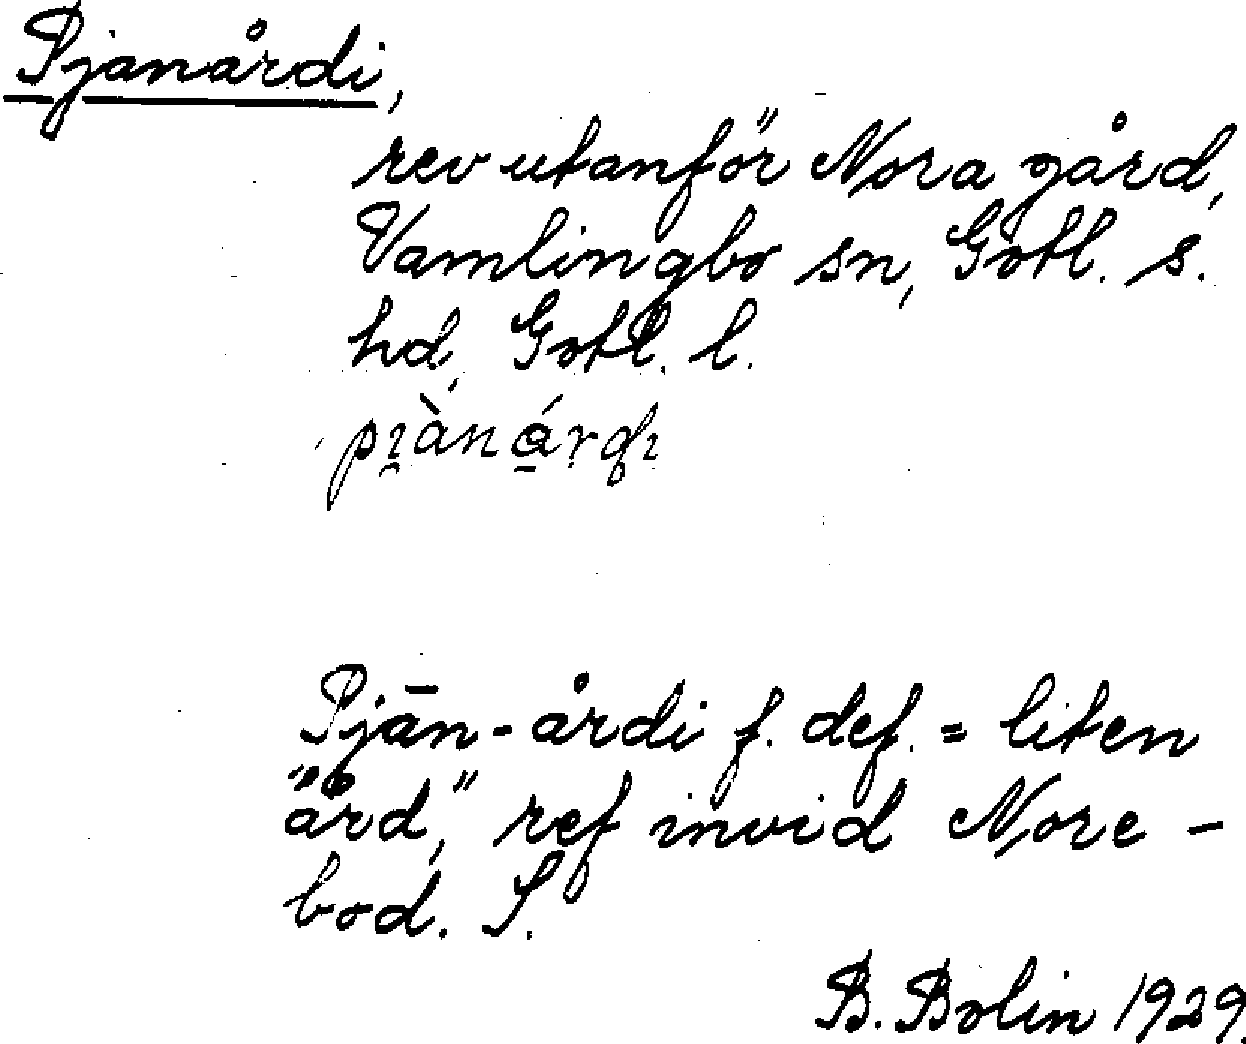 Pjanårdi,
rev utanför Nora gård,
Vamlingbo sn, Gotl. s.
hd, Gotl. l.
Pjān-årdi f. def. = liten
"ård", ref invid Nore-
bod. S.
B. Bolin 1929.